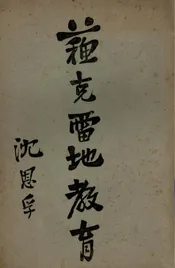 蘓克雷地教育
沈恩孚